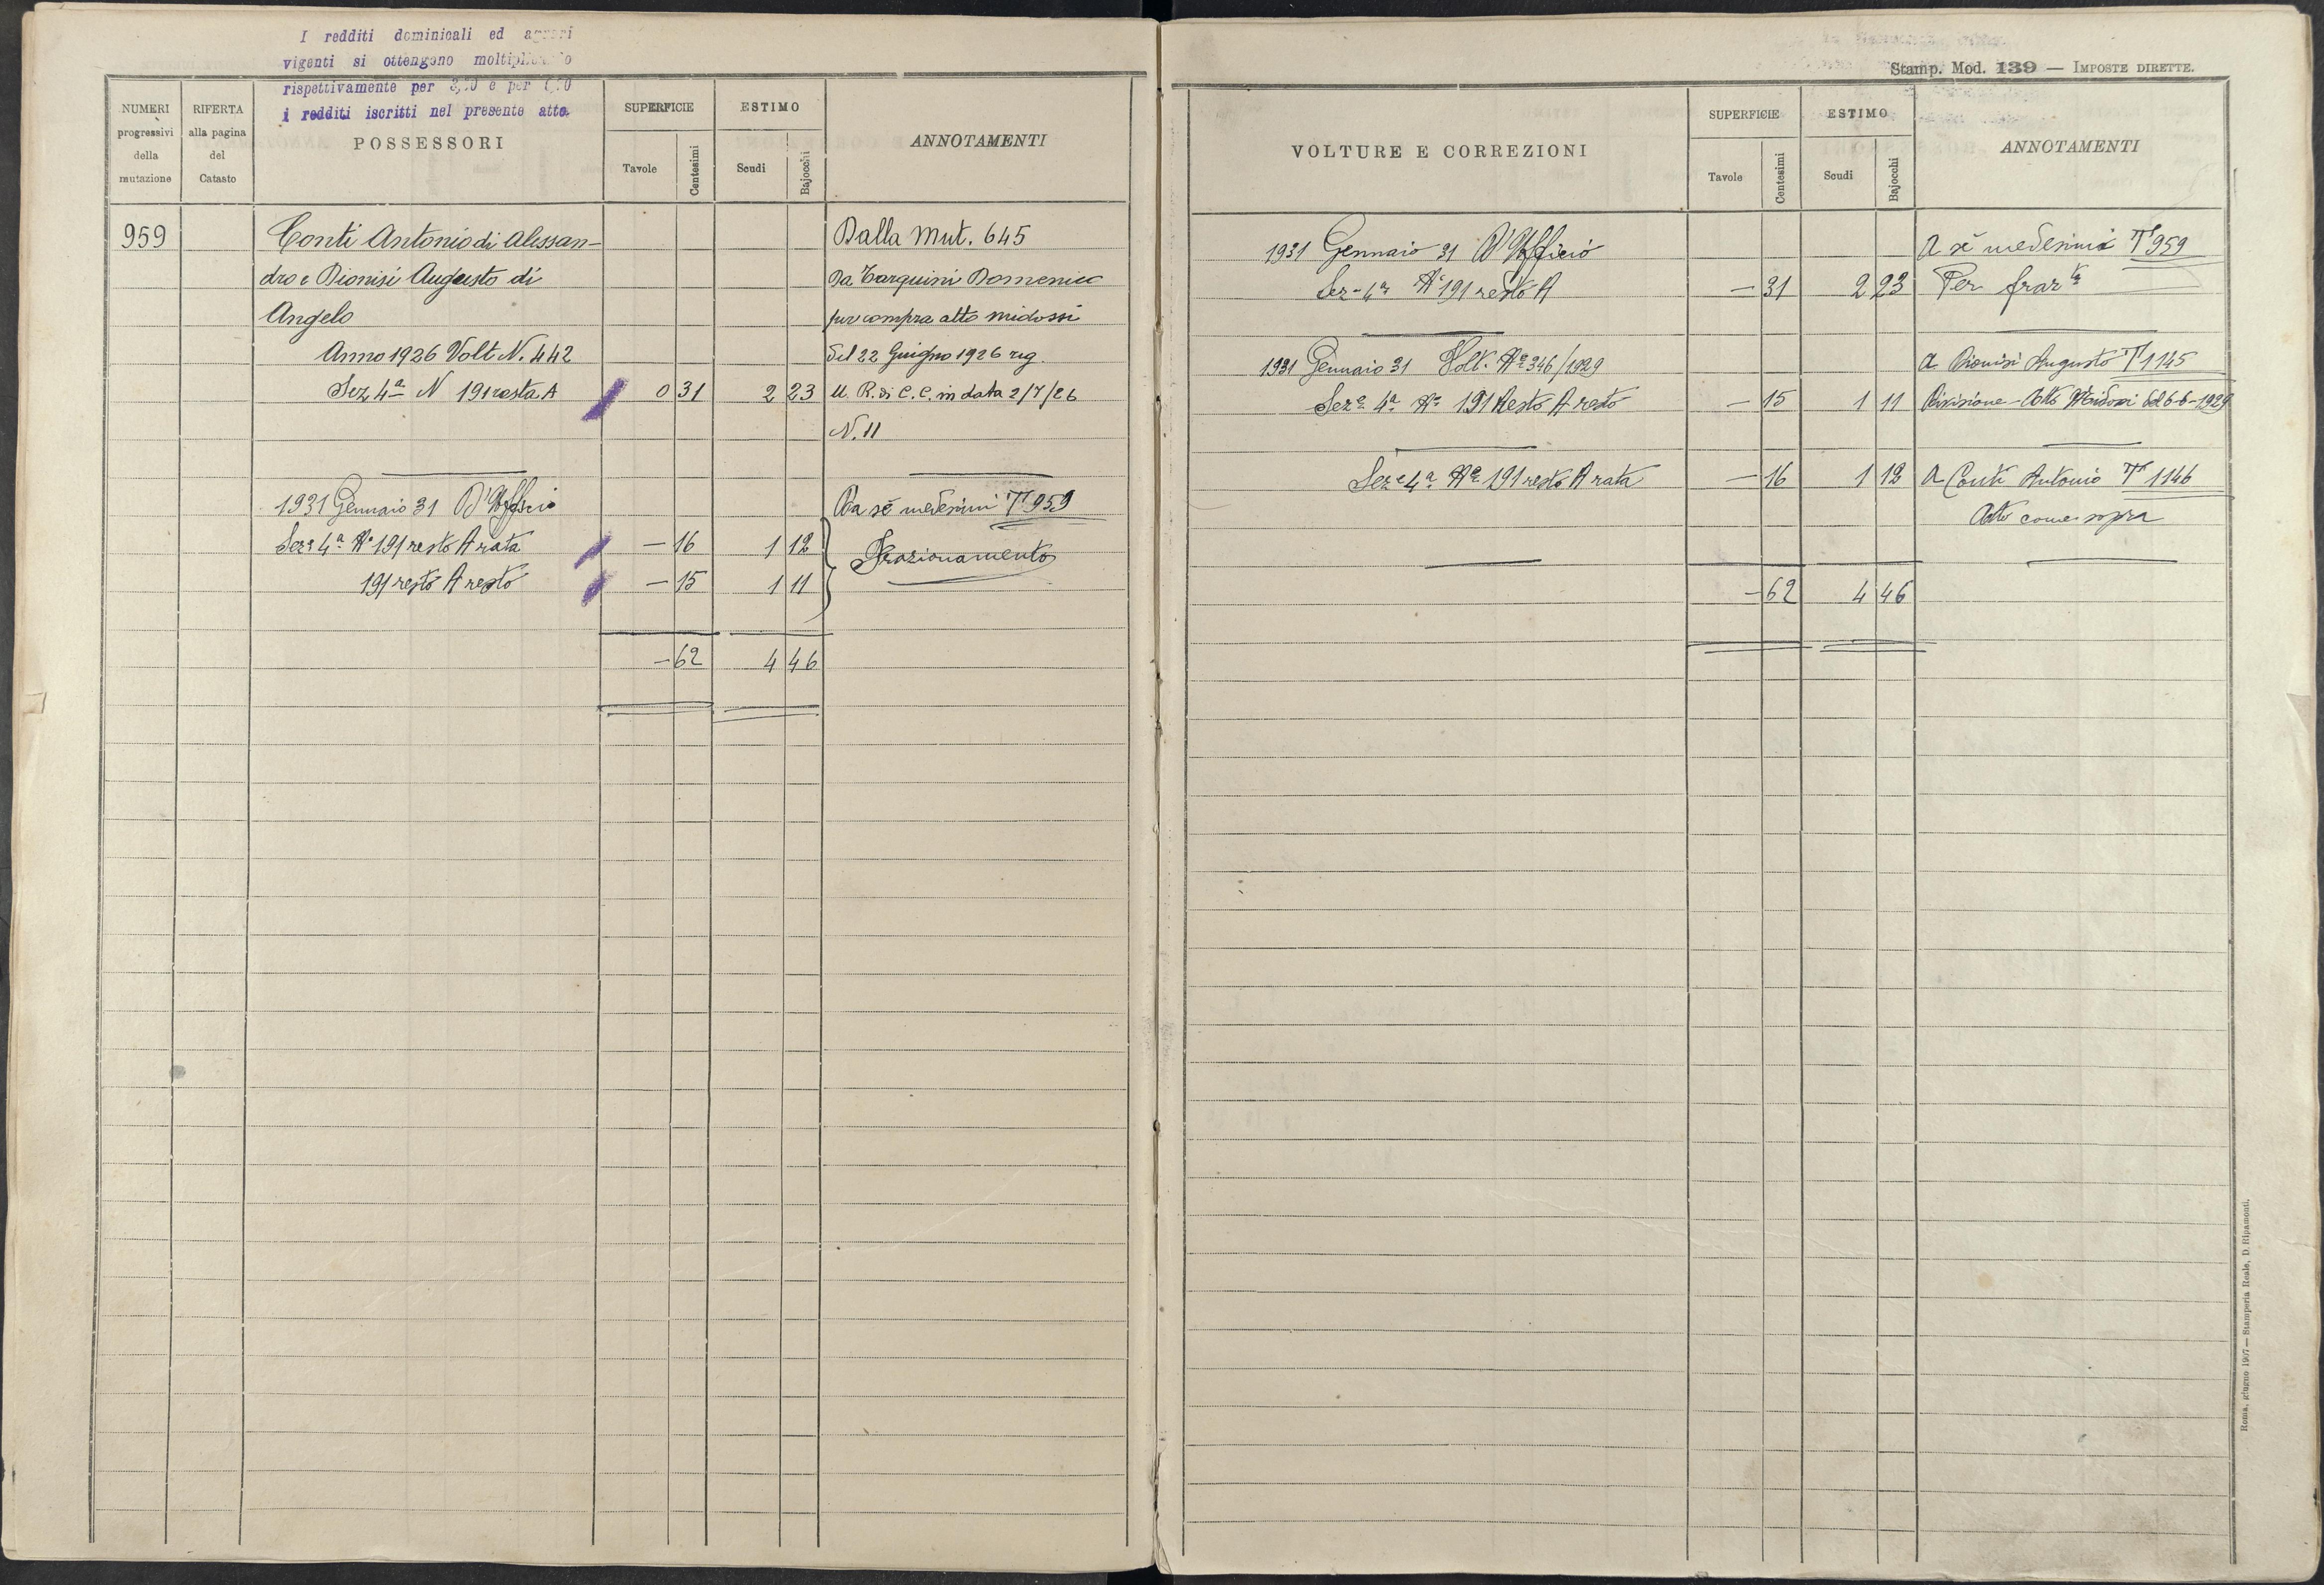 I redditi dominicali ed agrari
vigenti si ottengono
rispettivamente per e per
i redditi iscritti nel presente atto.
NUMERI progressivi della mutazione
RIFERTA alla pagina del Catasto
POSSESSORI
SUPERFICIE
Tavole
Centesimi
ESTIMO
Scudi
Bajocchi
ANNOTAMENTI
959 Conti Antonio di Alessan- Dalla Mut. 645
dro e Dionisi Augusto di Da Tarquini Domenico
Angelo per compra atto Midossi
Anno 1926 Volt N. 442 del 22 Giugno 1926 reg.
Sez 4a N 191 resta A 0 31 2 23 U. R. di C. C. in data 2/7/26
N. 11
1931 Gennaio 31 D'Ufficio Da sè medesimi T 959
Seze 4a No 191 resto A rata — 16 1 12 Frazionamento
191 resto A resto — 15 1 11
— 62 4 46
Stamp. Mod. 139 — IMPOSTE DIRETTE.
VOLTURE E CORREZIONI
SUPERFICIE
Tavole
Centesimi
ESTIMO
Scudi
Bajocchi
ANNOTAMENTI
1931 Gennaio 31 D'Ufficio A sè medesimi T 959
Sez- 4a No 191 resto A — 31 2 23 Per fraz.to
1931 Gennaio 31 Volt. No 346/1929 A Dionisi Augusto T 1145
Seze 4a No 191 Resto A resto — 15 1 11 Divisione - Atto Midossi del 6-6-1929
Seze 4a No 191 resto A rata — 16 1 12 A Conti Antonio T 1146
Atto come sopra
— 62 4 46
Roma, giugno 1907 — Stamperia Reale, D. Ripamonti.